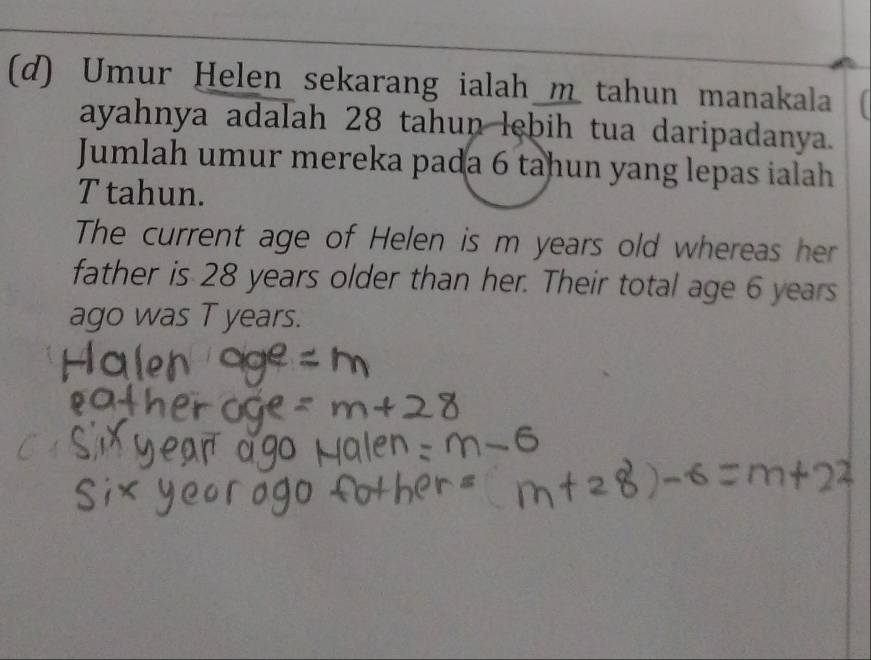 (d) Umur Helen sekarang ialah m tahun manakala
ayahnya adalah 28 tahun lebih tua daripadanya.
Jumlah umur mereka pada 6 tahun yang lepas ialah
T tahun.
The current age of Helen is m years old whereas her
father is 28 years older than her. Their total age 6 years
ago was T years.
Halen age = m
eather age = m + 28
Six year ago Halen = m - 6
Six year ago father = (m + 28) - 6 = m + 22